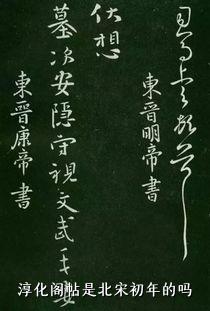 東晉明帝書
伏想
墓次安隱守視文武平安
東晉康帝書
淳化阁帖是北宋初年的吗